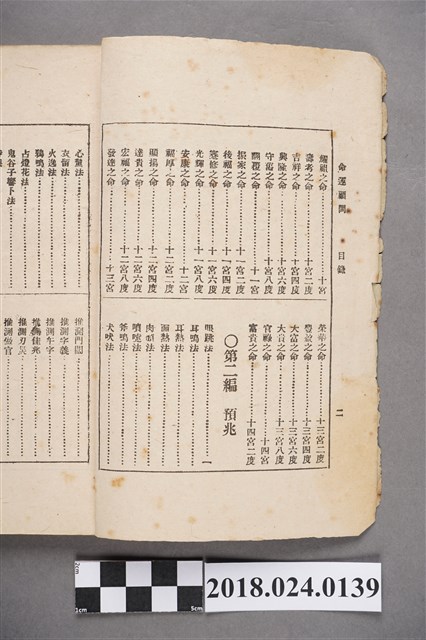 命運顧問 目錄 二
耀祖之命 十宮
壽考之命 十宮二度
吉祥之命 十宮四度
興隆之命 十宮六度
守舊之命 十宮八度
之命 十一宮
振家之命 十一宮二度
後福之命 十一宮四度
之命 十一宮六度
光輝之命 十一宮八度
安康之命 十二宮
之命 十二宮二度
顯揚之命 十二宮四度
達貴之命 十二宮六度
宏福之命 十二宮八度
發達之命 十三宮
榮華之命 十三宮二度
豐盈之命 十三宮四度
大富之命 十三宮六度
大貴之命 十三宮八度
官祿之命 十四宮
富貴之命 十四宮二度
〇第二編 預兆
眼跳法 一
耳鳴法
耳熱法
面熱法
肉顫法
噴嚏法
釜鳴法
犬吠法
心驚法
衣留法
火逸法
鵲鳴法
占燈花法
鬼谷子響卜法
推測門閭
推測字義
推測年字
推測佳兆
推測刃災
推測
2cm
1cm
5cm
2018.024.0139